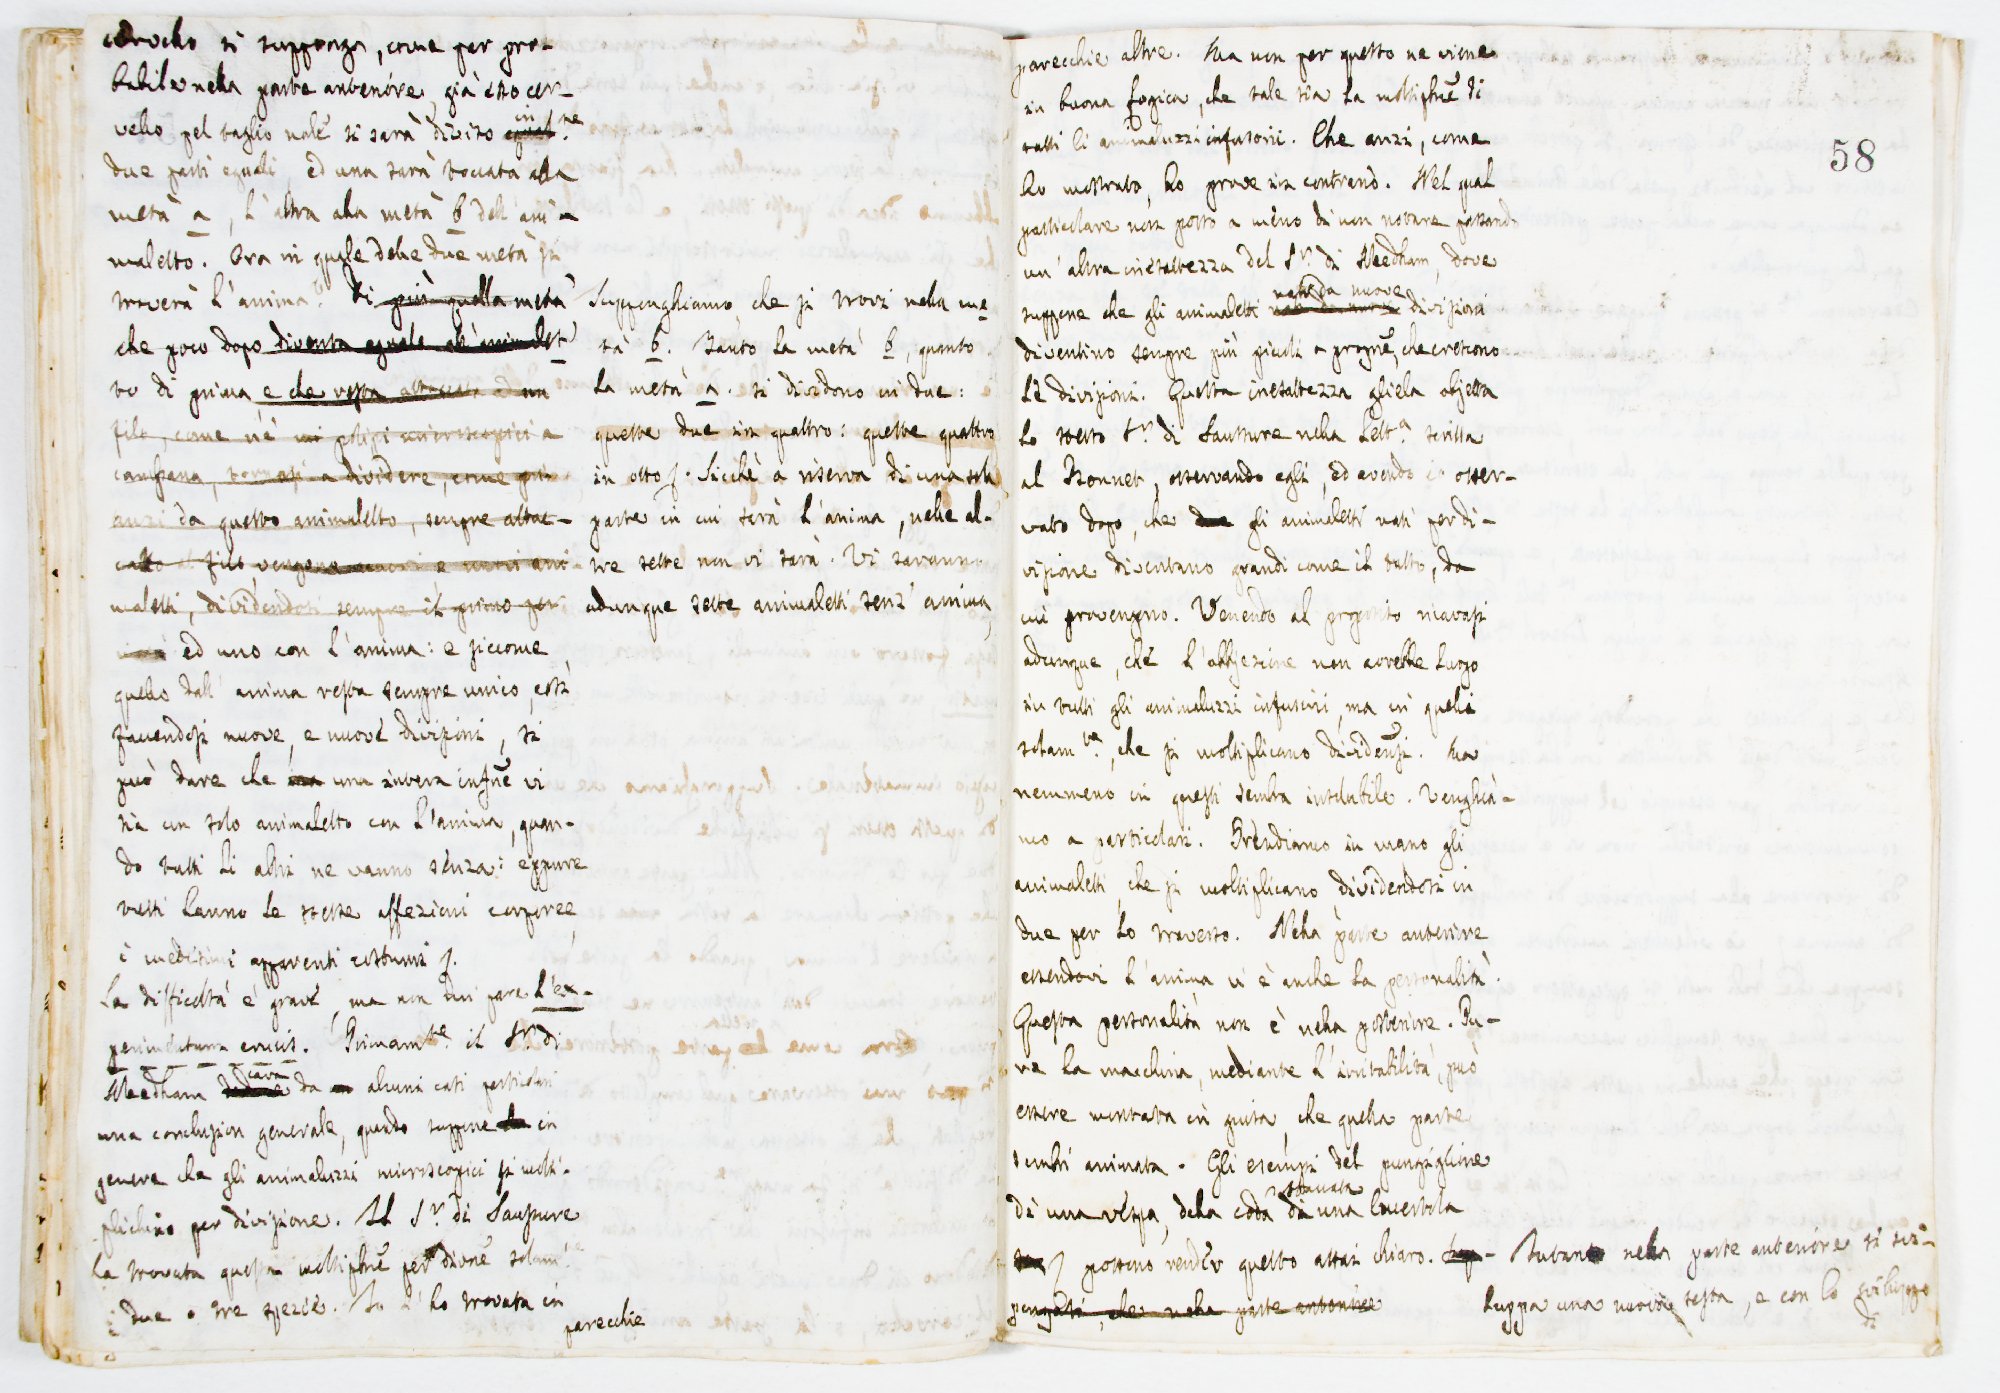 si supponga, come per pro-
babile nella parte anteriore, già esso cer-
vello pel taglio nale si sarà diviso in
due parti eguali, ed una sarà toccata alla
metà a, l'altra alla metà b dell'ani-
maletto. Ora in quale delle due metà si
troverà l'anima? Di più quella metà
che poco dopo diventa eguale all'animalet-
to di prima, e che resta attaccata ad un
filo, come ne' polipi microscopici a
campana, tornasi a dividere, come più
anzi da questo animaletto, sempre attac-
cato al filo, vengono nuovi e nuovi ani-
maletti, dividendosi sempre il primo per
ed uno con l'anima: e siccome
quello dall'anima resta sempre unico, così
facendosi nuove, e nuove divisioni, si
può dare che una intera infusne vi
sia un solo animaletto con l'anima, quan-
do tutti li altri ne vanno senza: eppure
tutti hanno le stesse affezioni corporee,
i medesimi apparenti costumi
La difficoltà è grave, ma non mi pare l'ex-
perimentum crucis. Primamte il Sr. di
Needham cava da alcuni casi particolari
una conclusion generale, quando suppone in
genere che gli animaluzzi microscopici si molti-
plichino per divisione. Il Sr. di Saussure
ha trovata questa moltiplne per divisne solamte
due o tre spezie. Io l'ho trovata in
parecchie
Suppunghiamo, che si trovi nella me
tà b. Tanto la metà b, quanto
la metà a. si dividono in due:
queste due in quattro: queste quattro
in otto. Sicchè a riserva di una sola
parte in cui sarà l'anima, nelle al-
tre sette non vi sarà. Vi saranno
adunque sette animaletti senz'anima,
58
parecchie altre. Ma non per questo ne viene
in buona Logica, che tale sia la moltiplne di
tutti li animaluzzi infusorii. Che anzi, come
ho mostrato, ho prove in contrario. Nel qual
particolare non posso a meno di non notare passando
un'altra inesattezza del Sr. di Needham, dove
nati da nuove
suppone che gli animaletti divisioni
diventino sempre più piccoli a proporne, che crescono
le divisioni. Questa inesattezza gliela objetta
lo stesso Sr. di Saussure nella Letta. scritta
al Bonnet, osservando egli, ed avendo io osser-
vato dopo, che gli animaletti nati per di-
visione diventano grandi come il tutto, da
cui provengono. Venendo al proposito ricavasi
adunque, che l'obbjezione non avrebbe luogo
in tutti gli animaluzzi infusorii, ma in quelli
solamte, che si moltiplicano dividensi. Ma
nemmeno in questi sembra insolubile. Venghia-
mo a particolari. Prendiamo in mano gli
animaletti, che si moltiplicano, dividendosi in
due per lo traverso. Nella parte anteriore
essendovi l'anima vi è anche la personalità.
Questa personalità non è nella posteriore. Pu-
re la macchina, mediante l'irritabilità, può
essere montata in guisa, che quella parte
sembri animata. Gli esempi del pungiglione
staccata
di una vespa, della coda da una lucertola
possono render questo assai chiaro.
che nella parte anteriore
Intanto nella parte anteriore si svi-
luppa una nuova testa, e con lo sviluppo
di